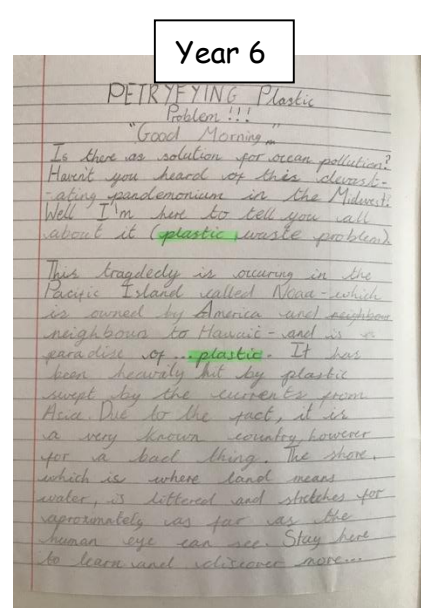 Year 6
PETRYFYING Plastic
Problem !!!
"Good Morning,,"
Is there as solution for ocean pollution?
Haven't you heard of this devast-
-ating pandemonium in the Midwest?
Well I'm here to tell you all
about it (plastic waste problem).
This tragdedly is occuring in the
Pacific Island called Noaa - which
is owned by America and neighbou
neighbours to Hawaii - and is a
paradise of ... plastic. It has
been heavily hit by plastic
swept by the currents from
Acia. Due to the fact, it is
a very known country, however
for a bad thing. The shore,
which is where land means
water, is littered and stretches for
aproximately as far as the
human eye can see. Stay here
to learn and discover more...